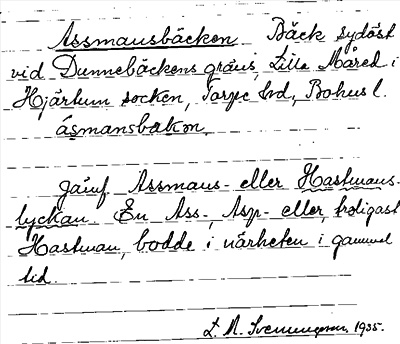 Assmansbäcken Bäck sydöst
vid Dunnebäckens gräns, Lilla Måred i
Hjärtum socken, Torpe hd, Bohusl.
åsmansbakon.
Jämf. Assmans- eller Hastmans-
lyckan. En Ass-, Asp- eller, troligast
Hastman, bodde i närheten i gammal
tid.
L. A. 1935.